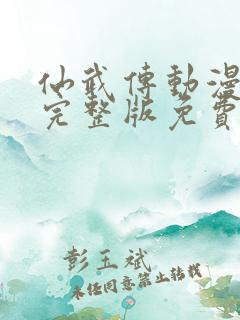 仙武傳動漫
完整版免費
彭玉斌
未经同意禁止转载